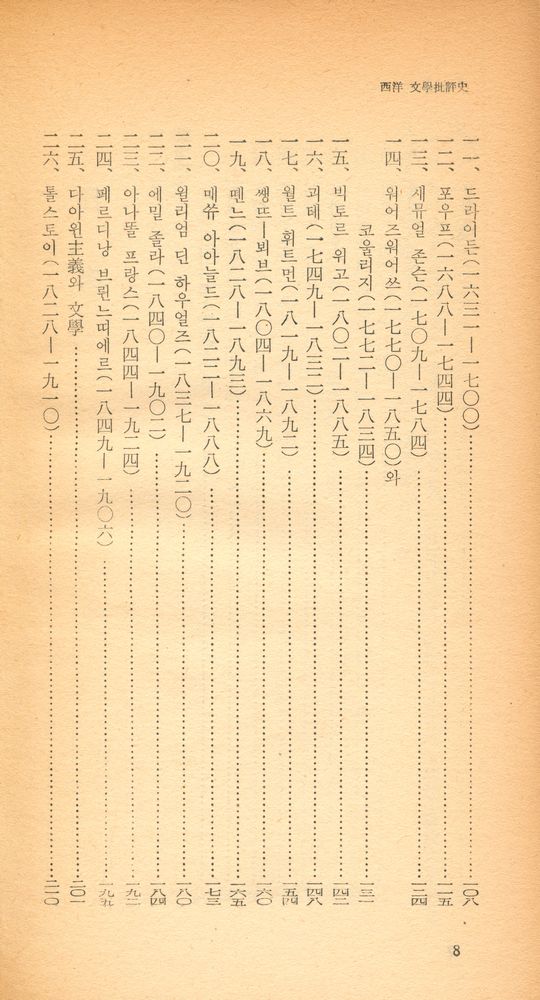 西洋 文學批評史
一一、드라이든(一六三一—一七〇〇)……一〇八
一二、포우프(一六八八—一七四四)……一一五
一三、새뮤얼 존슨(一七〇九—一七八四)……一二四
一四、워어즈워어쓰(一七七〇—一八五〇)와
코울리지(一七七二—一八三四)……一三一
一五、빅토르 위고(一八〇二—一八八五)……一四二
一六、괴테(一七四九—一八三二)……一四八
一七、월트 휘트먼(一八一九—一八九二)……一五四
一八、쌩뜨—뵈브(一八〇四—一八六九)……一六〇
一九、뗀느(一八二八—一八九三)……一六五
二〇、매쓔 아아놀드(一八二二—一八八八)……一七三
二一、윌리엄 딘 하우얼즈(一八三七—一九二〇)……一八〇
二二、에밀 졸라(一八四〇—一九〇二)……一八四
二三、아나똘 프랑스(一八四四—一九二四)……一九二
二四、페르디낭 브륀느띠에르(一八四九—一九〇六)……一九九
二五、다아윈主義와 文學……二〇一
二六、톨스토이(一八二八—一九一〇)……二一〇
8